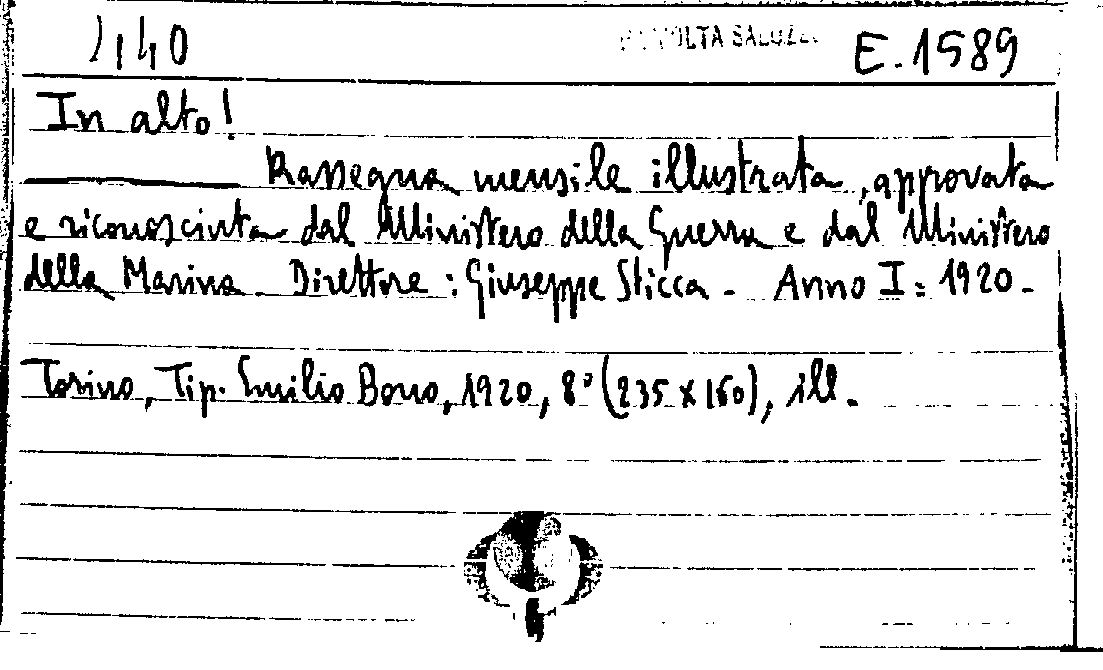 2140 RACCOLTA SALUZZO E.1589
In alto!
Rassegna mensile illustrata, approvata
e riconosciuta dal Ministero della Guerra e dal Ministero
della Marina. Direttore: Giuseppe Sticca - Anno I = 1920 -
Torino, Tip. Emilio Bono, 1920, 8° (235 x 160), ill.